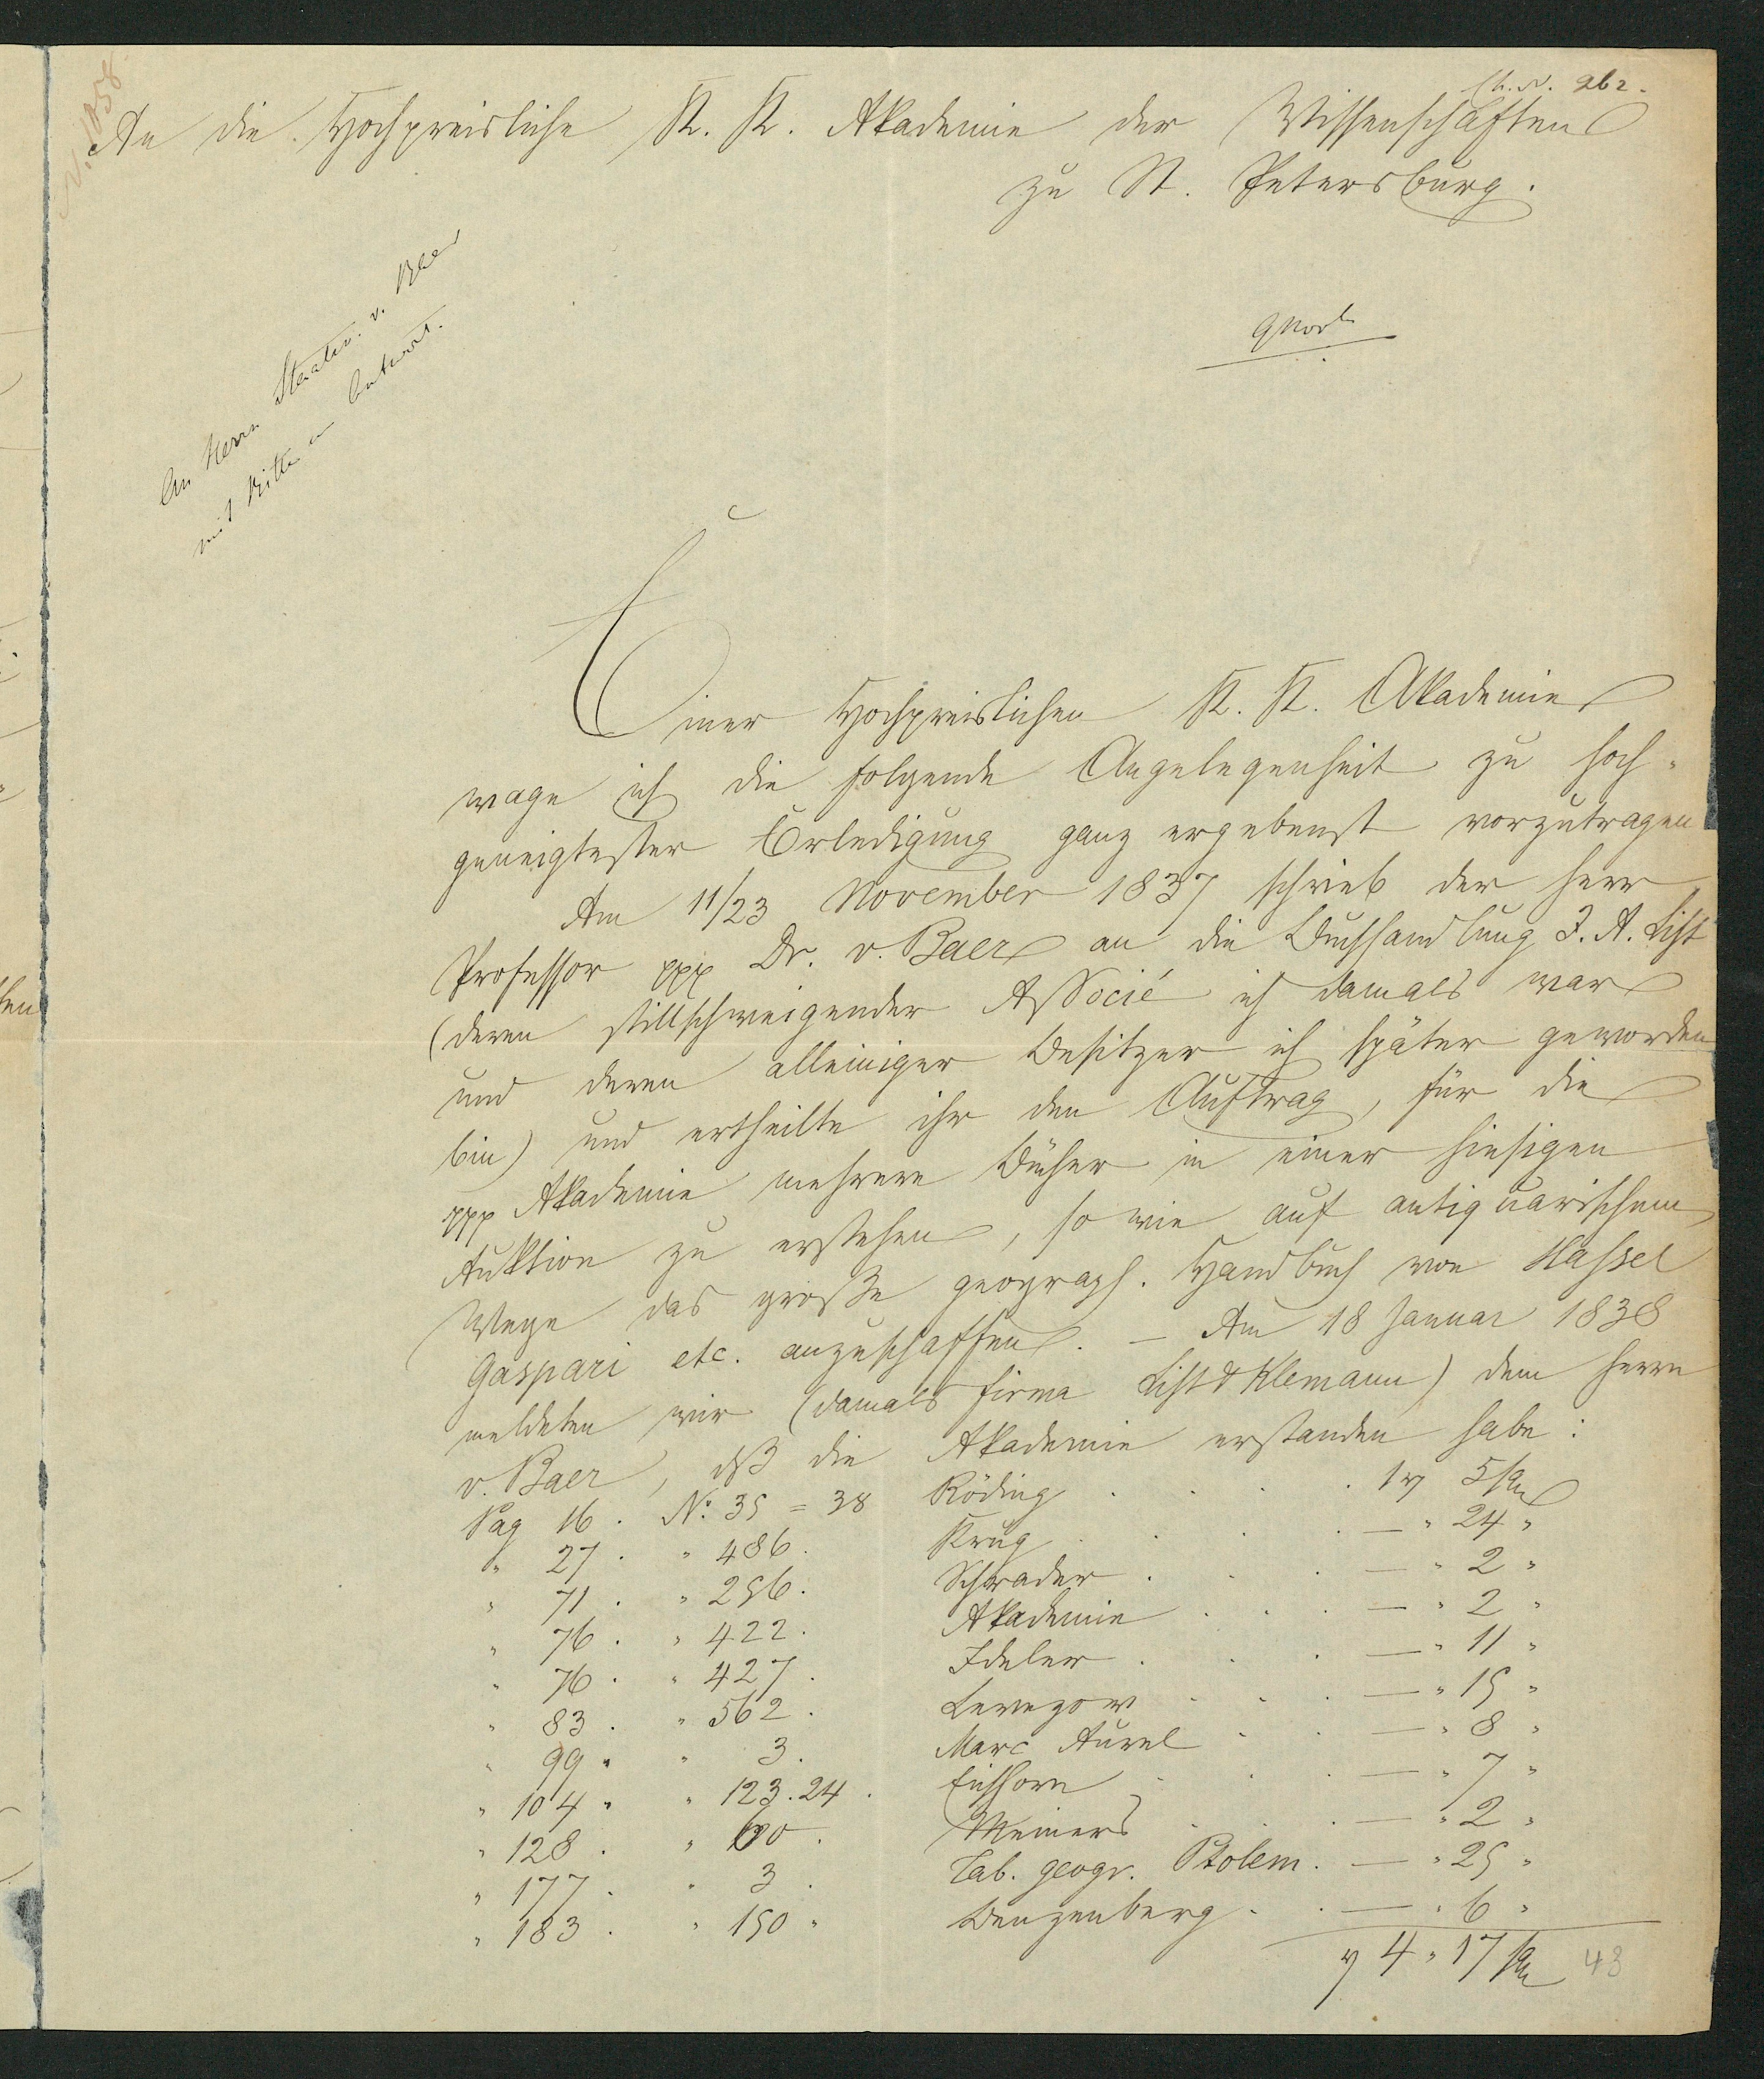 N. 1058.
262.
An die Hochpreisliche K. K. Akademie der Wissenschaften
zu St. Petersburg.
An Herrn Staatsr. v. Baer
mit Bitte um Antwort.
Einer Hochpreislichen K. K. Akademie
wage ich die folgende Angelegenheit zu hoch-
geneigtester Erledigung ganz ergebenst vorzutragen
Am 11/23 November 1837 schrieb der Herr
Professor ppp Dr. v. Baer an die Buchhandlung J. A. List
(deren stillschweigender Associé ich damals war
und deren alleiniger Besitzer ich später geworden
bin) und ertheilte ihr den Auftrag, für die
ppp Akademie mehrere Bücher in einer hiesigen
Auktion zu erstehen, so wie auf antiquarischem
Wege das große geograph. Handbuch von Hassel
Gaspari etc. anzuschaffen. — Am 18 Januar 1838
meldeten wir (damals Firma List & Klemann) dem Herrn
v. Baer, dß die Akademie erstanden habe:
Pag 16. No: 35 = 38 Röding . . . . 1 5 Sgr
" 27. " 486. Krug . . . — " 24 "
" 71. " 256. Schrader . . . — " 2 "
" 76. " 422. Akademie . . . — " 2 "
" 76. " 427. Ideler . . . — " 11 "
" 83. " 562. Levezow . . . — " 15 "
" 99. " 3. Marc Aurel . . — " 8 "
" 104. " 123.24. Eichhorn . . — " 7 "
" 128. " 60. Meiners . . . — " 2 "
" 177. " 3. Tab. geogr. Ptolem. — " 25 "
" 183. " 150. Benzenberg . . — " 6 "
4 " 17 Sgr
43